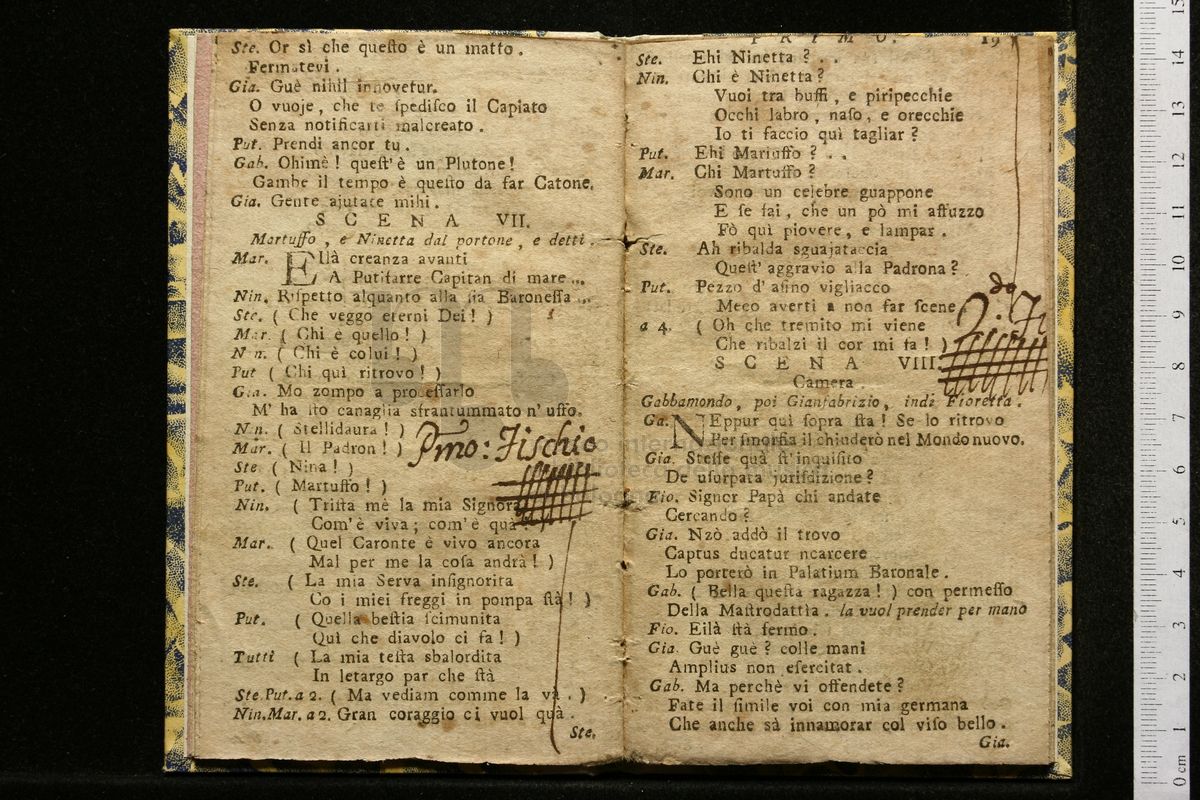 Ste. Or sì che queſto è un matto.
Fermatevi.
Gia. Guè nihil innovetur.
O vuoje, che te ſpediſco il Capiato
Senza notificarti malcreato.
Put. Prendi ancor tu.
Gab. Ohimè! queſt' è un Plutone!
Gambe il tempo è queſto da far Catone.
Gia. Gente ajutate mihi.
SCENA VII.
Martuffo, e Ninetta dal portone, e detti.
Mar. Ellà creanza avanti
A Putifarre Capitan di mare...
Nin. Riſpetto alquanto alla ſia Baroneſſa...
Ste. ( Che veggo eterni Dei! )
Mar. ( Chi è quello! )
Nin. ( Chi è colui! )
Put ( Chi quì ritrovo! )
Gia. Mo zompo a proceſſarlo
M' ha ſto canaglia sfrantummato n' uſſo.
Nin. ( Stellidaura! )
Mar. ( Il Padron! )
Pmo: Fischio
Ste. ( Nina! )
Put. ( Martuffo! )
Nin. ( Triſta me la mia Signora
Com' è viva; com' è quà! )
Mar. ( Quel Caronte è vivo ancora
Mal per me la coſa andrà! )
Ste. ( La mia Serva inſignorita
Co i miei freggi in pompa ſtà! )
Put. ( Quella beſtia ſcimunita
Quì che diavolo ci fa! )
Tutti ( La mia teſta sbalordita
In letargo par che ſtà
Ste.Put. a 2. ( Ma vediam comme la và. )
Nin.Mar. a 2. Gran coraggio ci vuol quà.
Ste.
PRIMO. 19
Ste. Ehi Ninetta?..
Nin. Chi è Ninetta?
Vuoi tra buffi, e piripecchie
Occhi labro, naſo, e orecchie
Io ti faccio quì tagliar?
Put. Ehi Martuffo?..
Mar. Chi Martuffo?
Sono un celebre guappone
E ſe ſai, che un pò mi affuzzo
Fò quì piovere, e lampar.
Ste. Ah ribalda sguajataccia
Queſt' aggravio alla Padrona?
Put. Pezzo d' aſino vigliacco
Meco averti a non far ſcene
a 4. ( Oh che tremito mi viene
Che ribalzi il cor mi fa! )
2.do Fi
SCENA VIII.
Camera.
Gabbamondo, poi Gianfabrizio, indi Fioretta.
Ga. Neppur quì ſopra ſta! Se lo ritrovo
Per ſmorfia il chiuderò nel Mondo nuovo.
Gia. Steſſe quà ſt' inquiſito
De uſurpata juriſdizione?
Fio. Signor Papà chi andate
Cercando?
Gia. Nzò addò il trovo
Captus ducatur ncarcere
Lo porterò in Palatium Baronale.
Gab. ( Bella queſta ragazza! ) con permeſſo
Della Maſtrodattìa. la vuol prender per mano
Fio. Eilà ſtà fermo.
Gia. Guè guè? colle mani
Amplius non eſercitat.
Gab. Ma perchè vi offendete?
Fate il ſimile voi con mia germana
Che anche sà innamorar col viſo bello.
Gia.
0 cm 1 2 3 4 5 6 7 8 9 10 11 12 13 14 15